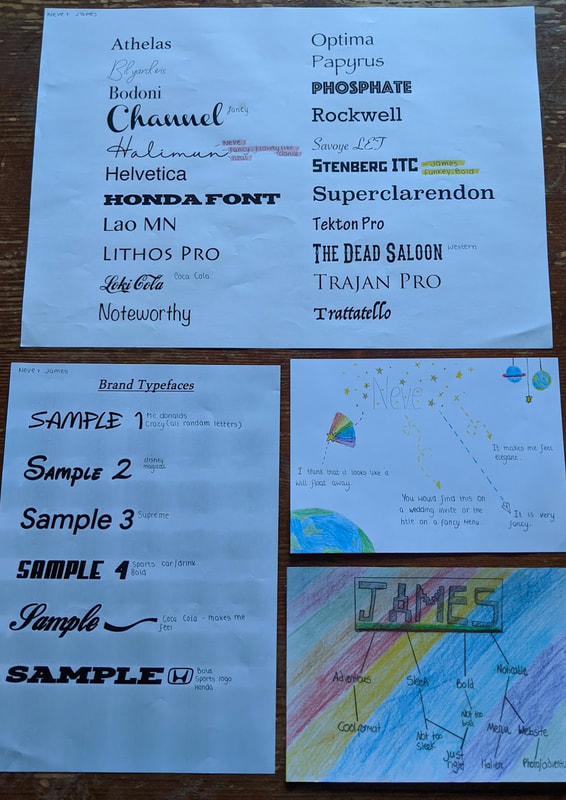 Neve + James
Athelas
Blyardeis
Bodoni
Channel fancy
Halimun Neve: fancy, flowey like dance neat
Helvetica
HONDA FONT
Lao MN
LITHOS PRO
Loki Cola Coca Cola
Noteworthy
Optima
Papyrus
PHOSPHATE
Rockwell
Savoye LET
STENBERG ITC - James funkey, Bold
Superclarendon
Tekton Pro
THE DEAD SALOON western
TRAJAN PRO
Trattatello
Neve + James
Brand Typefaces
SAMPLE 1 Mc donalds
Crazy (all random letters)
SAMPLE 2 disney
magical
Sample 3 Supreme
SAMPLE 4 Sports car/drink
Bold
Sample Coca Cola - makes me
feel
SAMPLE Bold
Sports logo
Honda
Neve
It makes me feel
elegant.
I think that it looks like a
will float away.
You would find this on
a wedding invite or the
title on a fancy menu.
It is very
fancy.
JAMES
Sleek Bold Noticable
Cool format
Not too
sleek
Not too
bold
Just
right
Menu Website